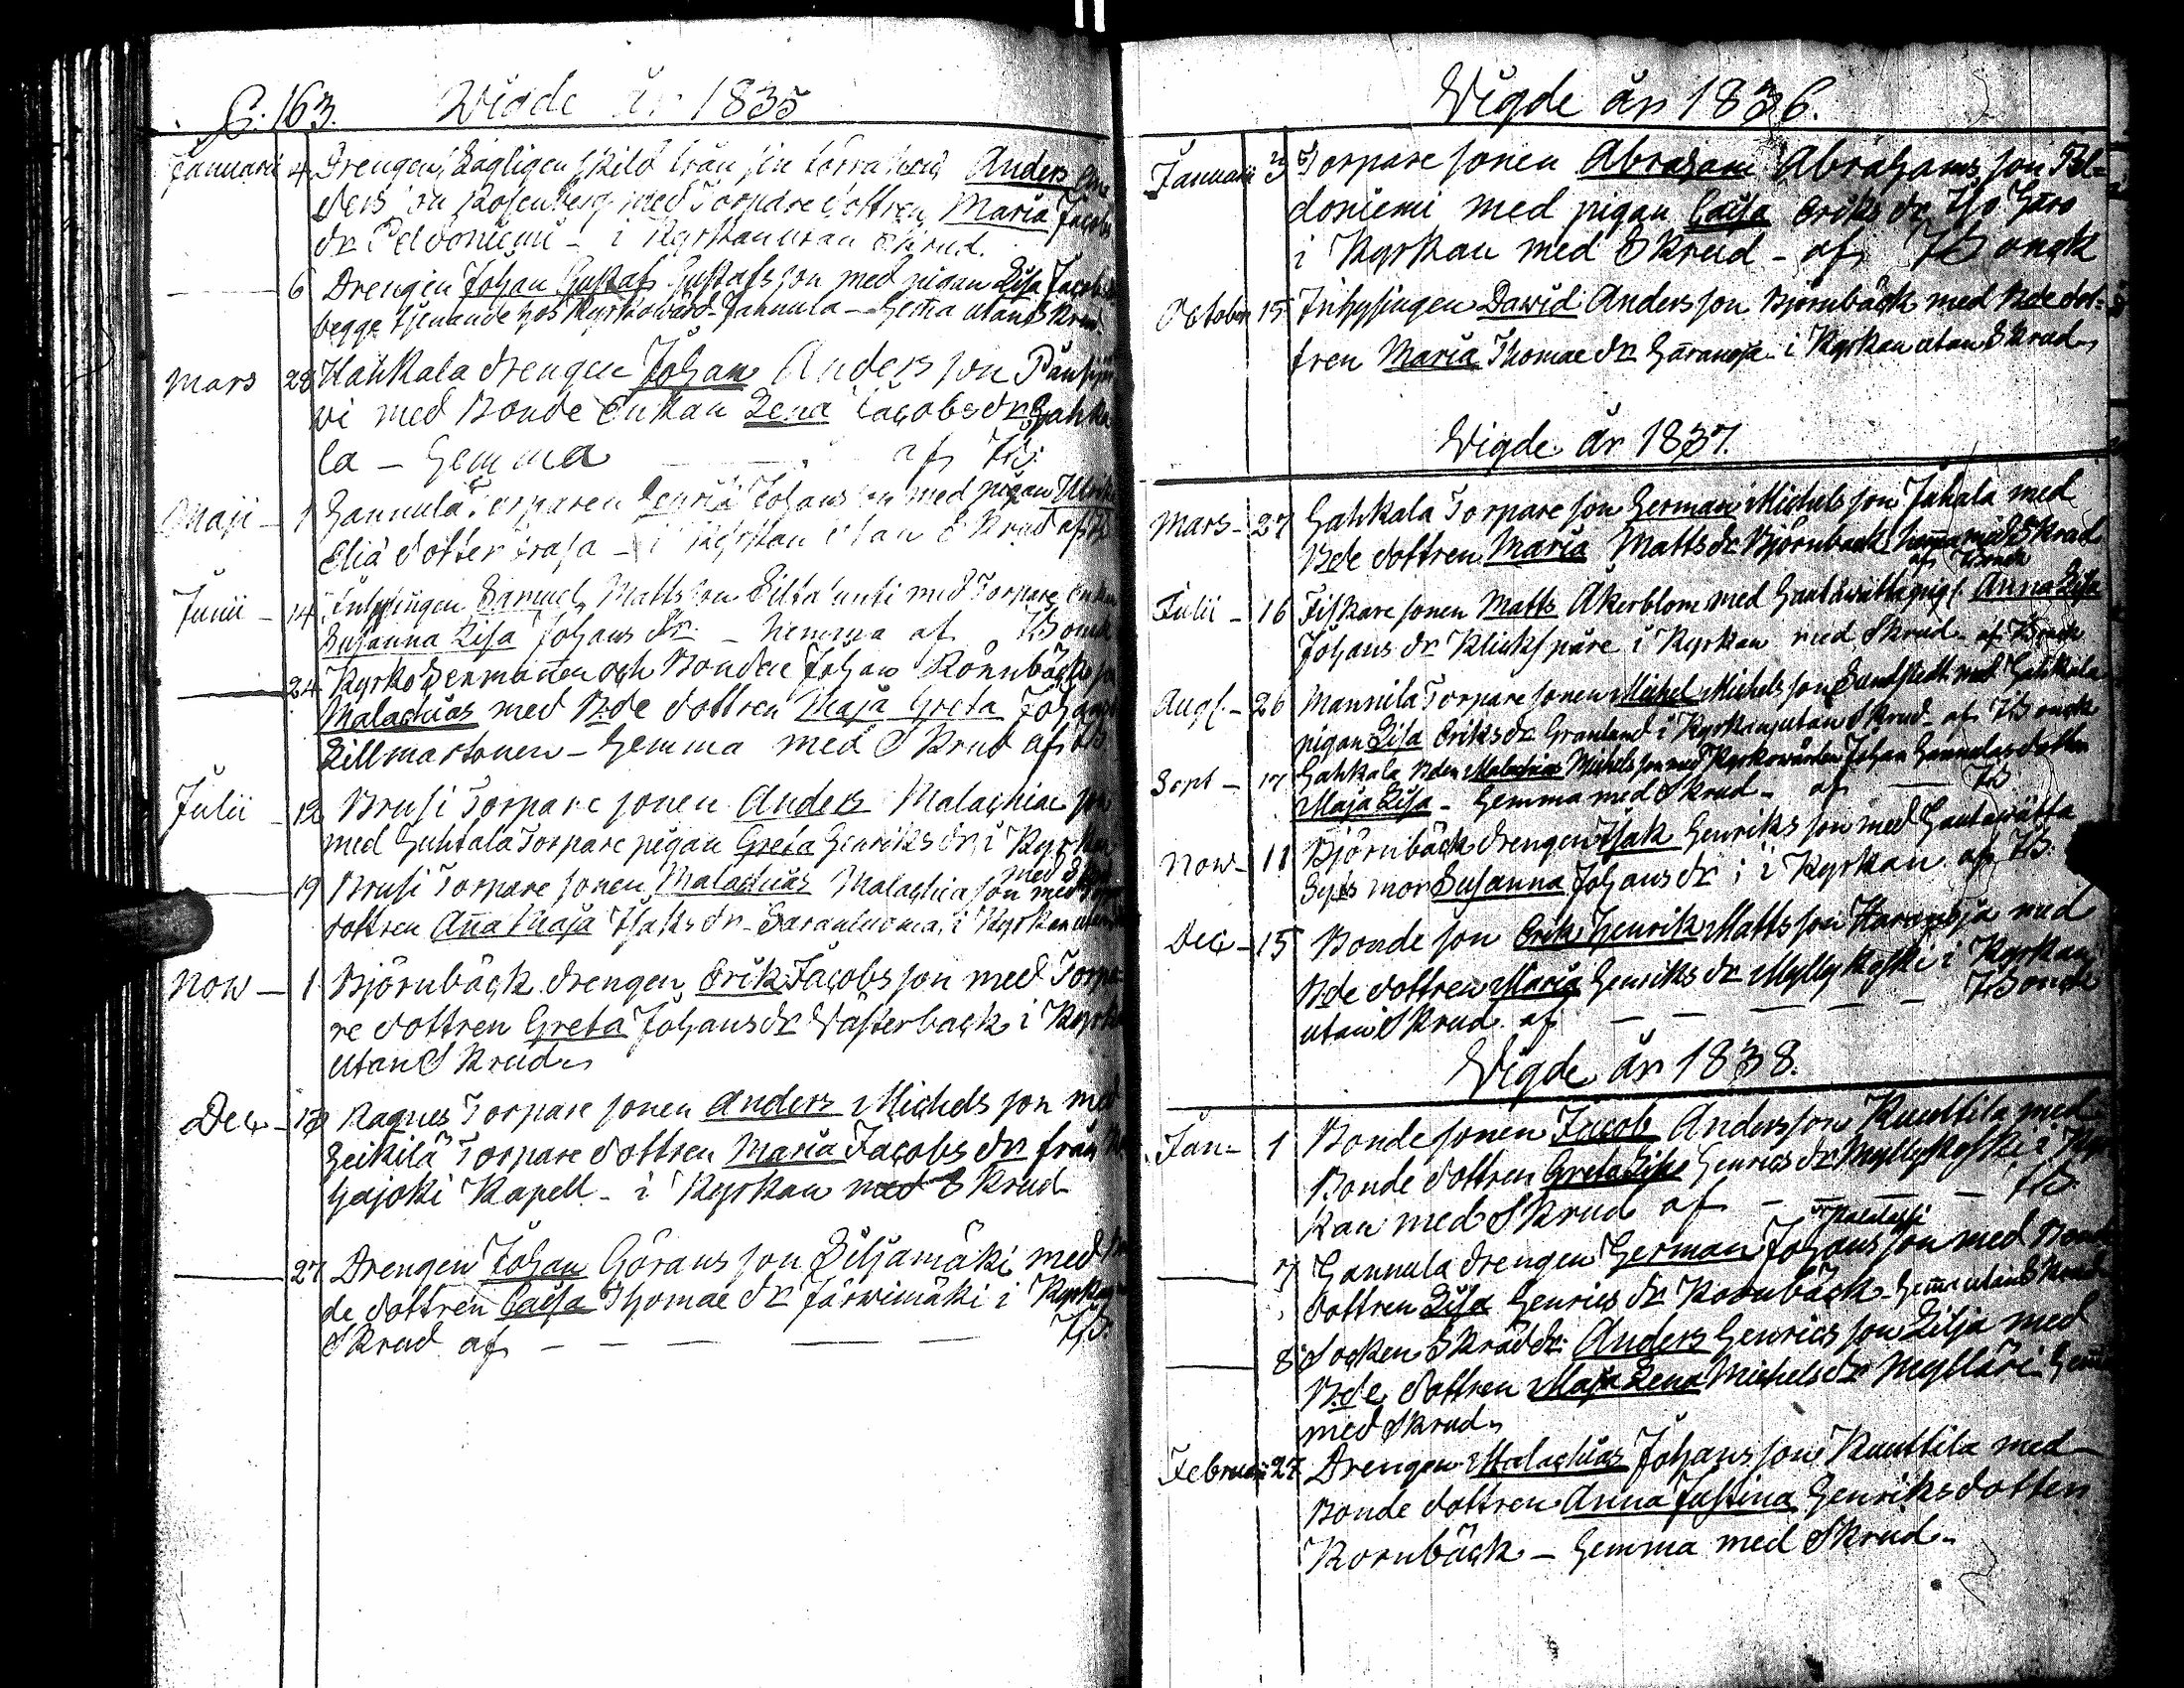 S. 163. Wigde år 1835
Januarii 4 Drengen, Lagligen skild från sin förra hustru Anders An
ders son Rosenberg med Torpare dottren Maria Jacobs
dr Peldoniemi - i Kyrkan utan Skrud.
6 Drengen Johan Gustaf Gustafs son med pigan Lisa Jacobs
begge tjenande hos Kyrkowärd Hannula - Hemma utan Skrud.
Mars 28 Hahkala drengen Johan Anders son
wi med Bonde Enkan Lena Jacobs dr Hahka
la - Hemma af HB.
Maji - 1 Hannula Torparen Henrik Johans son med pigan Ulrika
Elia dotter Frasa - i Kyrkan utan Skrud af
Junii - 14 Inhysingen Samuel Matts son med Torpare Enkan
Susanna Lisa Johans dr. - hemma af HBonck
24 Kyrko Sexmannen och Bonden Johan Rönnbäcks son
Malachias med Bde dottren Maja Greta Johans
Lillmårtonen - Hemma med Skrud af HB
Julii - 12 Brusi Torpare sonen Anders Malachiae son
med Huhtala Torpare pigan Greta Henriks dr i Kyrkan
med Skrud
19 Brusi Torpare sonen Malachias Malachiae son med
dottren Anna Maja Isaks dr - Saranluoma, i Kyrkan utan
Now - 1 Björnbäck drengen Erik Jacobs son med Torpa
re dottren Greta Johans dr Wästerback i Kyrkan
utan Skrud.
Dec - 13 Ragnes Torpare sonen Anders Michels son med
Heikilä Torpare dottren Maria Jacobs dr från
Hajoki Kapell - i Kyrkan med Skrud
27 Drengen Johan Görans son Liljamäki med Bon
de dottren Caisa Thomae dr Järwimäki i Kyrkan
Skrud af - - - - HB.
Wigde år 1836.
Januarii 3 Torpare sonen Abraham Abrahams son Pel-
doniemi med pigan Caisa Eriks dr Iso Haro
i Kyrkan med Skrud - af HBonck
October 15 Inhysingen Dawid Anders son Björnbäck med Bde dot-
tren Maria Thomae dr Haranoja i Kyrkan utan Skrud
Wigde år 1837.
Mars - 27 Hahkala Torpare son Herman Michels son Juhala med
Bde dottren Maria Matts dr Björnback hemma med Skrud
af HBonck
Julii - 16 Fiskare sonen Matts Åkerblom med Hautawätta pig. Anna Lisa
Johans dr Klickspåre i Kyrkan med Skrud - af HBonck
Aug. - 26 Mannila Torpare sonen Michel Michels son Sandstedt med Hahkala
pigan Lisa Eriks dr Granlund i Kyrkan utan Skrud - af HBonck
Sept - 17 Hahkala Bden Malachias Michels son med Kyrkowärden Johan Hannulas dotter
Maja Lisa - Hemma med Skrud - af - HB
Now - 11 Björnbäck drengen Isak Henriks son med Hautawätta
Syts mor Susanna Johans dr i Kyrkan af HB.
Dec - 15 Bonde son Erik Henrik Matts son Haranoja med
Bde dottren Maria Henriks dr Myllykoski i Kyrkan
utan Skrud af - - - - HBonck
Wigde år 1838.
Jan - 1 Bonde sonen Jacob Anders son Kuuttila med
Bonde dottren Greta Lisa Henrics dr Myllykoski i Kyr
kan med Skrud af - - - - HB.
7 Hannula drengen Herman Johans son med Bonde
dottren Lisa Henrics dr Kornbäck - Hemma utan Skrud
8 Socken Skräddr. Anders Henrics son Lilja med
Bde dottren Maja Lena Michels dr Mylläri Hemma
med Skrud.
Februari 27 Drengen Malachias Johans son Kuuttila med
Bonde dottren Anna Justina Henriks dotter
Kornbäck - Hemma med Skrud.